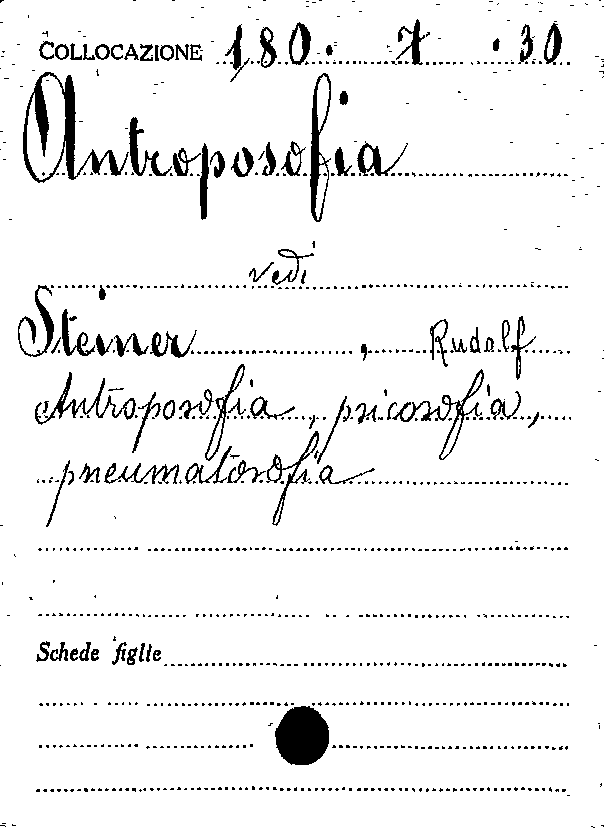 COLLOCAZIONE 180. 7 .30
Antroposofia
vedi
Steiner, Rudolf
Antroposofia, psicosofia,
pneumatosofia
Schede figlie